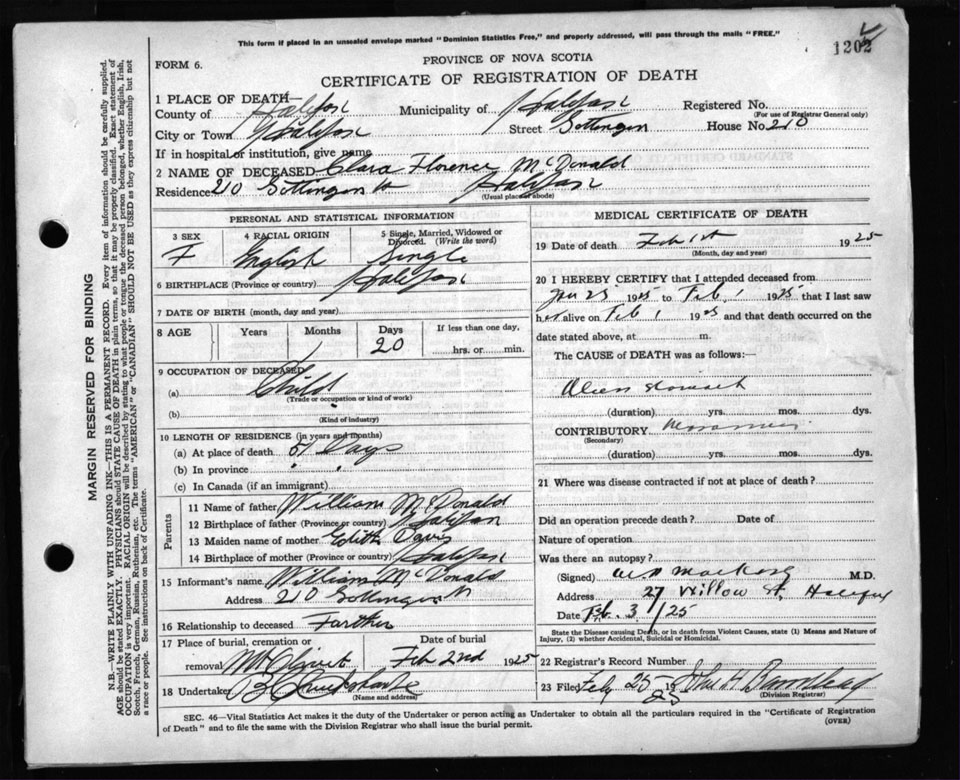 This form if placed in an unsealed envelope marked "Dominion Statistics Free," and properly addressed, will pass through the mails "FREE."
1202
FORM 6.
PROVINCE OF NOVA SCOTIA
CERTIFICATE OF REGISTRATION OF DEATH
1 PLACE OF DEATH
County of Halifax Municipality of Halifax Registered No.
(For use of Registrar General only)
City or Town Halifax Street Gottingen House No. 210
If in hospital or institution, give name
2 NAME OF DECEASED Clara Florence McDonald
Residence 210 Gottingen St Halifax
(Usual place of abode)
PERSONAL AND STATISTICAL INFORMATION
3 SEX 4 RACIAL ORIGIN 5 Single, Married, Widowed or Divorced. (Write the word)
F English Single
6 BIRTHPLACE (Province or country) Halifax
7 DATE OF BIRTH (month, day and year)
8 AGE Years Months Days If less than one day,
1 20 hrs. or min.
9 OCCUPATION OF DECEASED
(a) Child
(Trade or occupation or kind of work)
(b)
(Kind of industry)
10 LENGTH OF RESIDENCE (in years and months)
(a) At place of death 51 Days
(b) In province " "
(c) In Canada (if an immigrant)
Parents
11 Name of father William McDonald
12 Birthplace of father (Province or country) Halifax
13 Maiden name of mother Edith Davis
14 Birthplace of mother (Province or country) Halifax
15 Informant's name William McDonald
Address 210 Gottingen St
16 Relationship to deceased Farther
17 Place of burial, cremation or removal Mt Olivet Date of burial Feb 2nd 1925
18 Undertaker
(Name and address)
MEDICAL CERTIFICATE OF DEATH
19 Date of death Feb 1st 1925
(Month, day and year)
20 I HEREBY CERTIFY that I attended deceased from
Jan 25 1925 to Feb 1 1925 that I last saw
her alive on Feb 1 1925 and that death occurred on the
date stated above, at m.
The CAUSE of DEATH was as follows:—
(duration) yrs. mos. dys.
CONTRIBUTORY
(Secondary)
(duration) yrs. mos. dys.
21 Where was disease contracted if not at place of death?
Did an operation precede death? Date of
Nature of operation
Was there an autopsy?
(Signed) M.D.
Address 27 Willow St. Halifax
Date Feb. 3/25
State the Disease causing Death, or in death from Violent Causes, state (1) Means and Nature of Injury, (2) whether Accidental, Suicidal or Homicidal.
22 Registrar's Record Number
23 Filed Feby 25 1925
(Division Registrar)
SEC. 46—Vital Statistics Act makes it the duty of the Undertaker or person acting as Undertaker to obtain all the particulars required in the "Certificate of Registration
of Death" and to file the same with the Division Registrar who shall issue the burial permit.
(OVER)
MARGIN RESERVED FOR BINDING
N.B.—WRITE PLAINLY WITH UNFADING INK—THIS IS A PERMANENT RECORD. Every item of information should be carefully supplied.
AGE should be stated EXACTLY. PHYSICIANS should STATE CAUSE OF DEATH in plain terms, so that it may be properly classified. Exact statement of
OCCUPATION is very important. RACIAL ORIGIN will be described by stating to what people or tongue the deceased person belonged, whether English, Irish,
Scotch, French, German, Russian, Ruthenian, etc. The terms "AMERICAN" or "CANADIAN" SHOULD NOT BE USED as they express citizenship but not
a race or people. See instructions on back of Certificate.